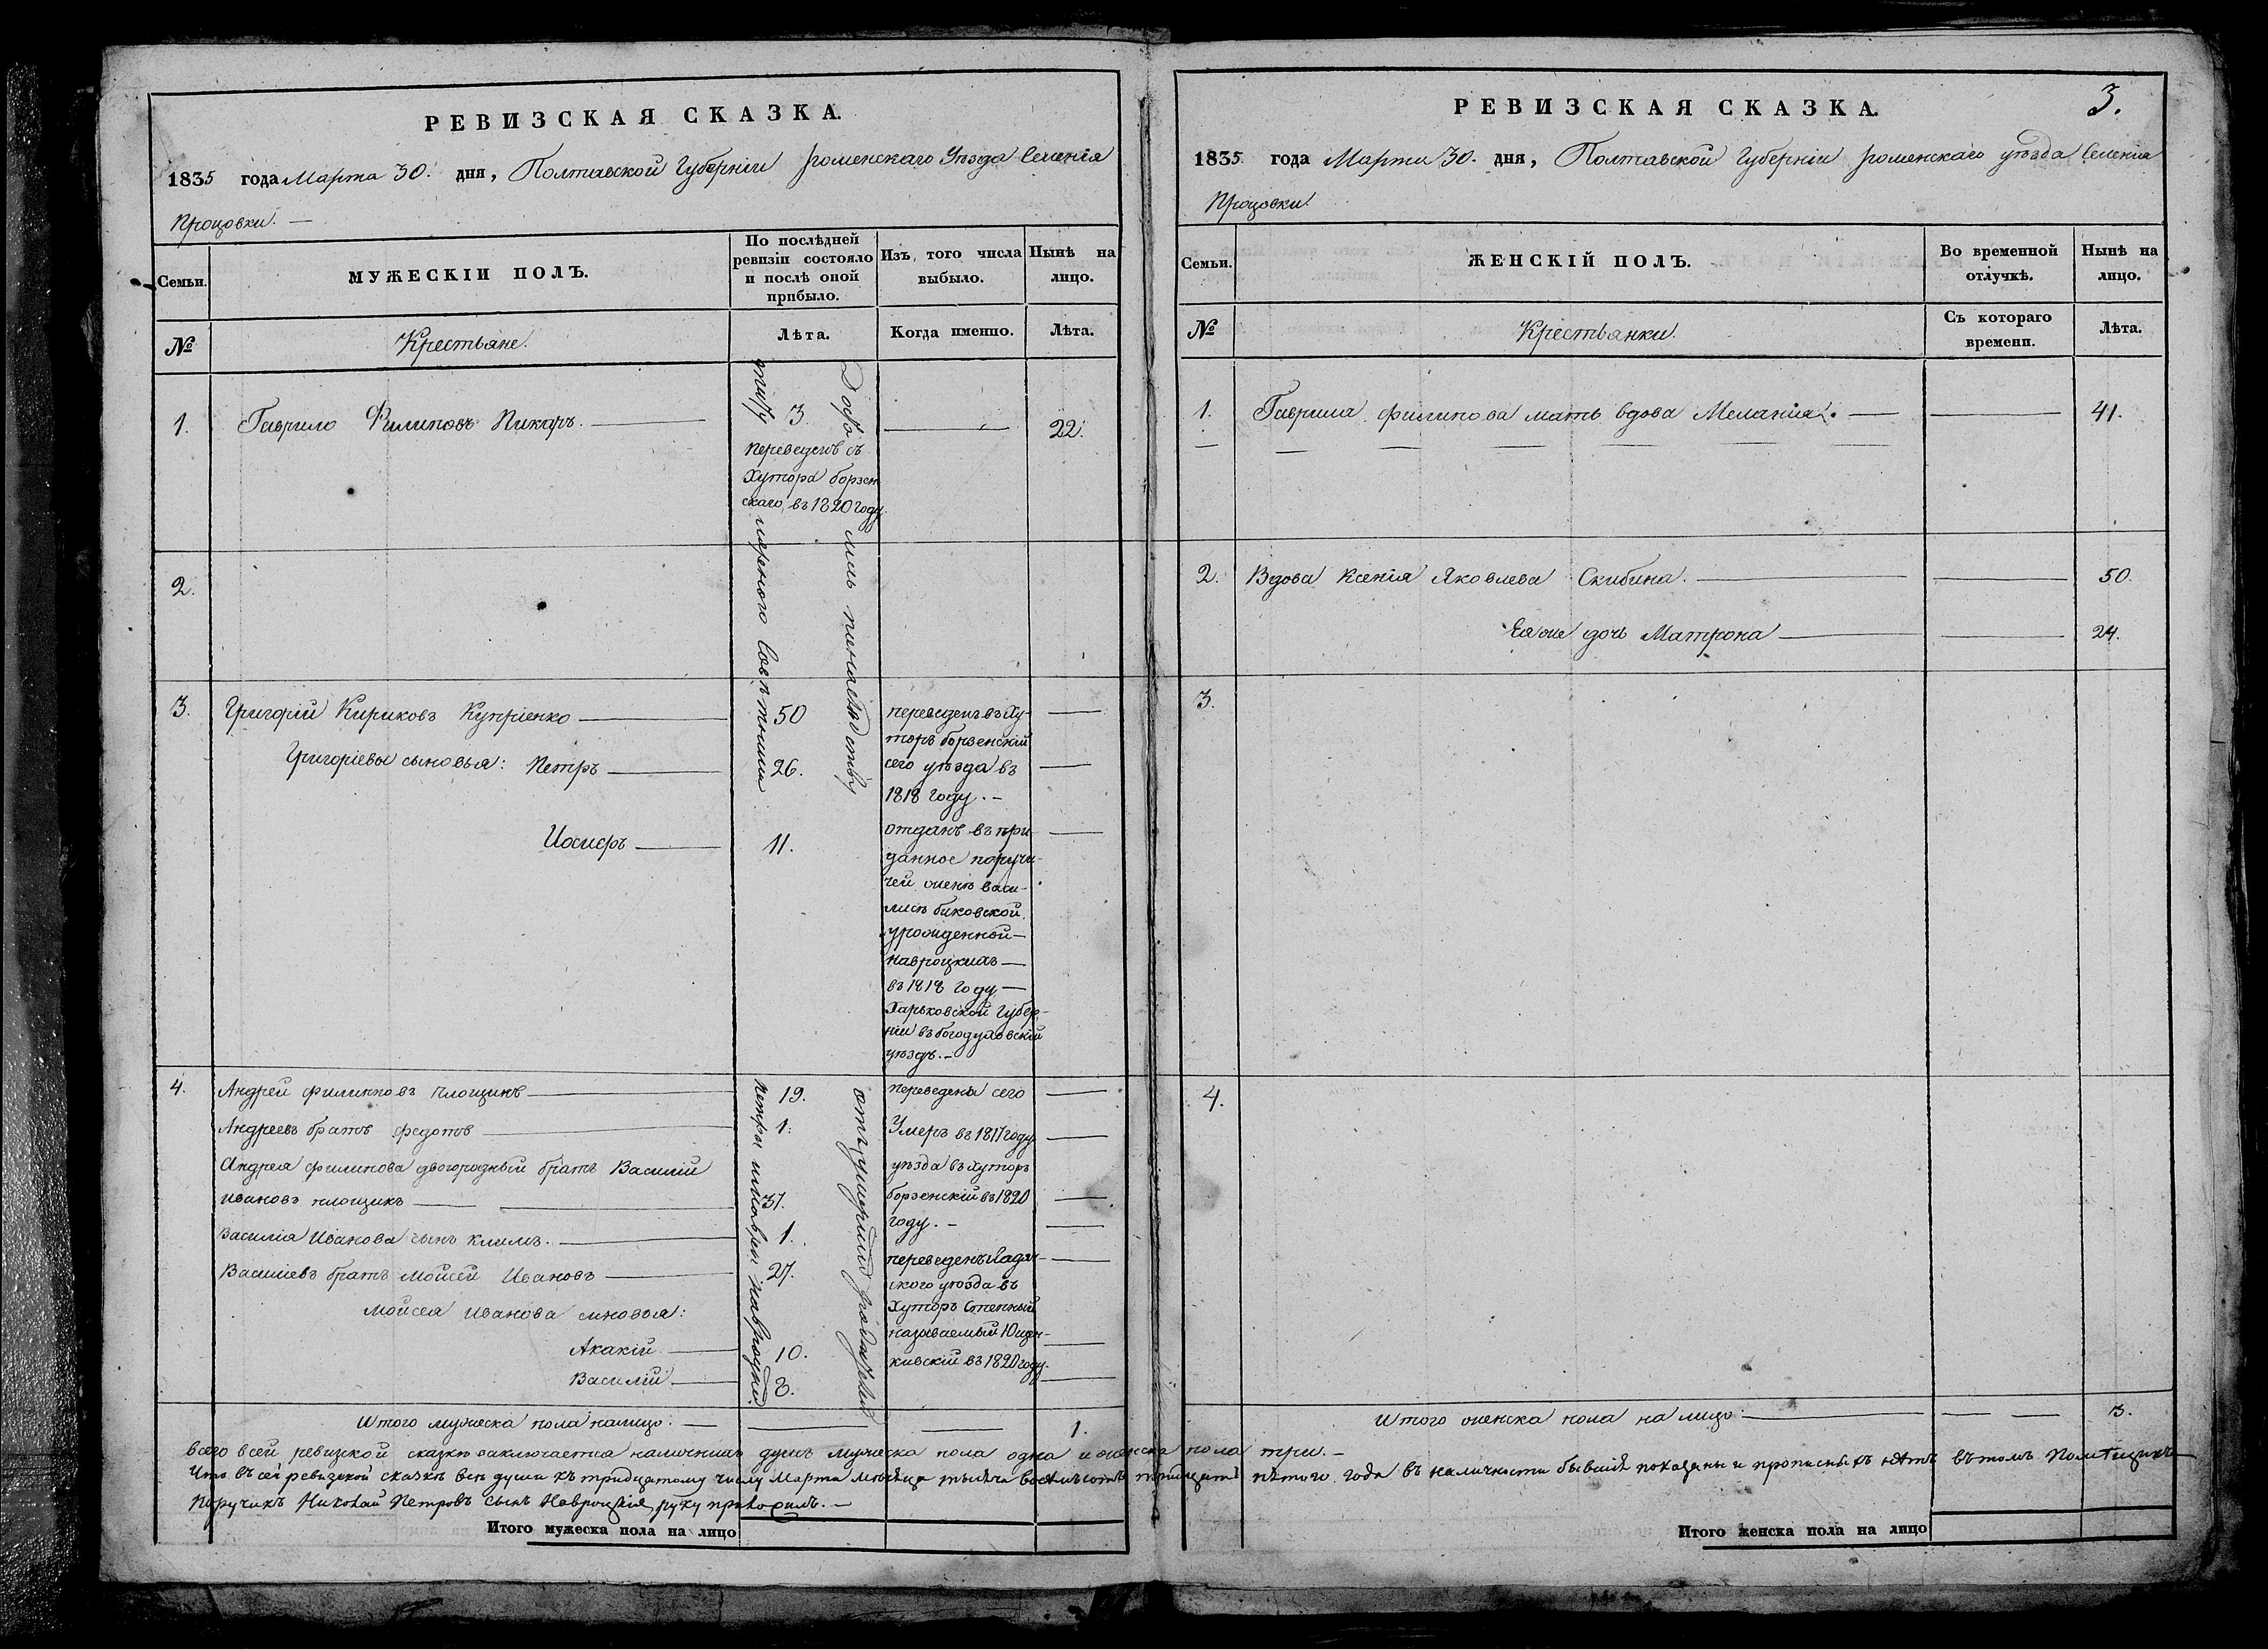 РЕВИЗСКАЯ СКАЗКА.
1835 года Марта 30. дня, Полтавской Губерніи роменскаго Уѣзда Селенія
Процовки. —
Семьи.
МУЖЕСКІИ ПОЛЪ.
По послѣдней
ревизіи состояло
и послѣ оной
прибыло.
Изъ того числа
выбыло.
Нынѣ на
лицо.
№
Крестьяне.
Лѣта.
Когда именно.
Лѣта.
1. Гаврило Филиповъ Пикаръ. — 3. — 22.
переведенъ съ
Хутора борзен
скаго въ 1820 году
2.
3. Григорій Кириковъ Купріенко — 50
переведенъ въ Ху-
торъ борзенскій
Григоріевы сыновья: Петръ — 26.
сего уѣзда въ
1818 году. —
Иосифъ — 11.
отданъ въ при-
данное поручи-
чей женѣ Васи-
лисѣ биковской
урожденной —
Навроцкихъ —
въ 1818 году —
Харьковской Губер-
ніи въ богодуховскій
уѣздъ. —
4. Андрей филиповъ площикъ — 19. переведены сего
Андреевъ братъ федотъ — 1. Умеръ въ 1817 году
Андрея филипова двогородный братъ Василій
уѣзда въ хуторъ
Ивановъ площикъ — 37.
борзенскій въ 1820
году. —
Василія Иванова сынъ климъ. — 1.
Василіевъ братъ Мойсей Ивановъ — 27.
переведенъ Гадяч-
ского уѣзда въ
Мойсея Иванова сновья:
Хуторъ Степный
называемый Ющен-
Акакій — 10.
кивскій въ 1820 году.
Василій — 3.
Итого мужеска пола налицо: — 1.
Петра Навроцкій
отъ умершаго родителя
РЕВИЗСКАЯ СКАЗКА.
3.
1835 года Марта 30. дня, Полтавской Губерніи роменскаго уѣзда Селенія
Процовки.
Семьи.
ЖЕНСКІЙ ПОЛЪ.
Во временной
отлучкѣ.
Нынѣ на
лицо.
№
Крестьянки.
Съ котораго
времени.
Лѣта.
1. Гаврила филипова мать вдова Меланія. — 41.
2. Вдова Ксенія Яковлева Скибина. — 50.
Ея же дочь Матрона — 24.
3.
4.
Итого женска пола на лицо — 3.
всего всей ревизкой сказки заключается наличныхъ душъ мужеска пола одна и женска пола три. —
Что въ сей ревизской сказкѣ всѣ души къ тридцатому числу Марта мѣсяца тысяча восемьсотъ тридцать пѣтого года въ наличности бывшія показаны и прописныхъ нѣтъ въ томъ помѣщикъ
Поручикъ Николай Петровъ сынъ Навроцкій руку приложилъ. —
Итого мужеска пола на лицо
Итого женска пола на лицо